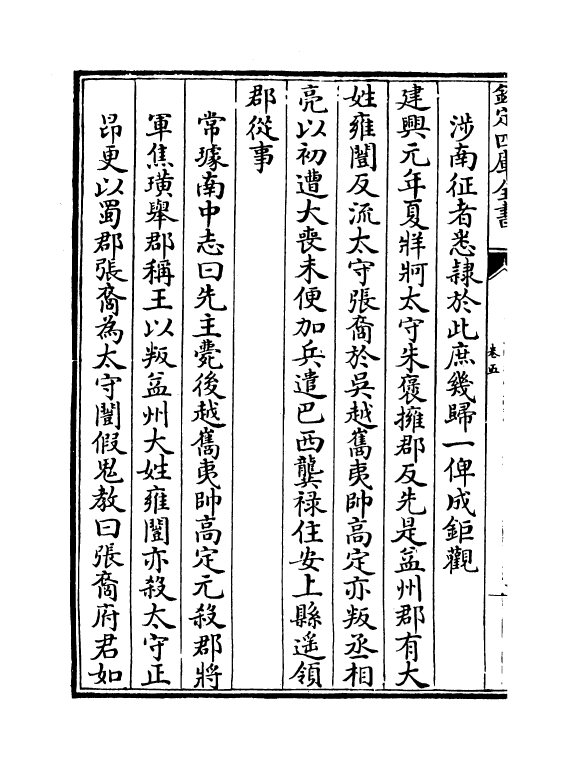 欽定四庫全書
卷五
涉南征者悉隷於此庶幾歸一俾成鉅觀
建興元年夏牂牁太守朱襃擁郡反先是益州郡有大
姓雍闓反流太守張裔於吳越嶲夷帥高定亦叛丞相
亮以初遭大喪未便加兵遣巴西龔禄住安上縣遥領
郡從事
常璩南中志曰先主薨後越嶲夷帥高定元殺郡將
軍焦璜舉郡稱王以叛益州大姓雍闓亦殺太守正
昂更以蜀郡張裔為太守闓假鬼教曰張裔府君如